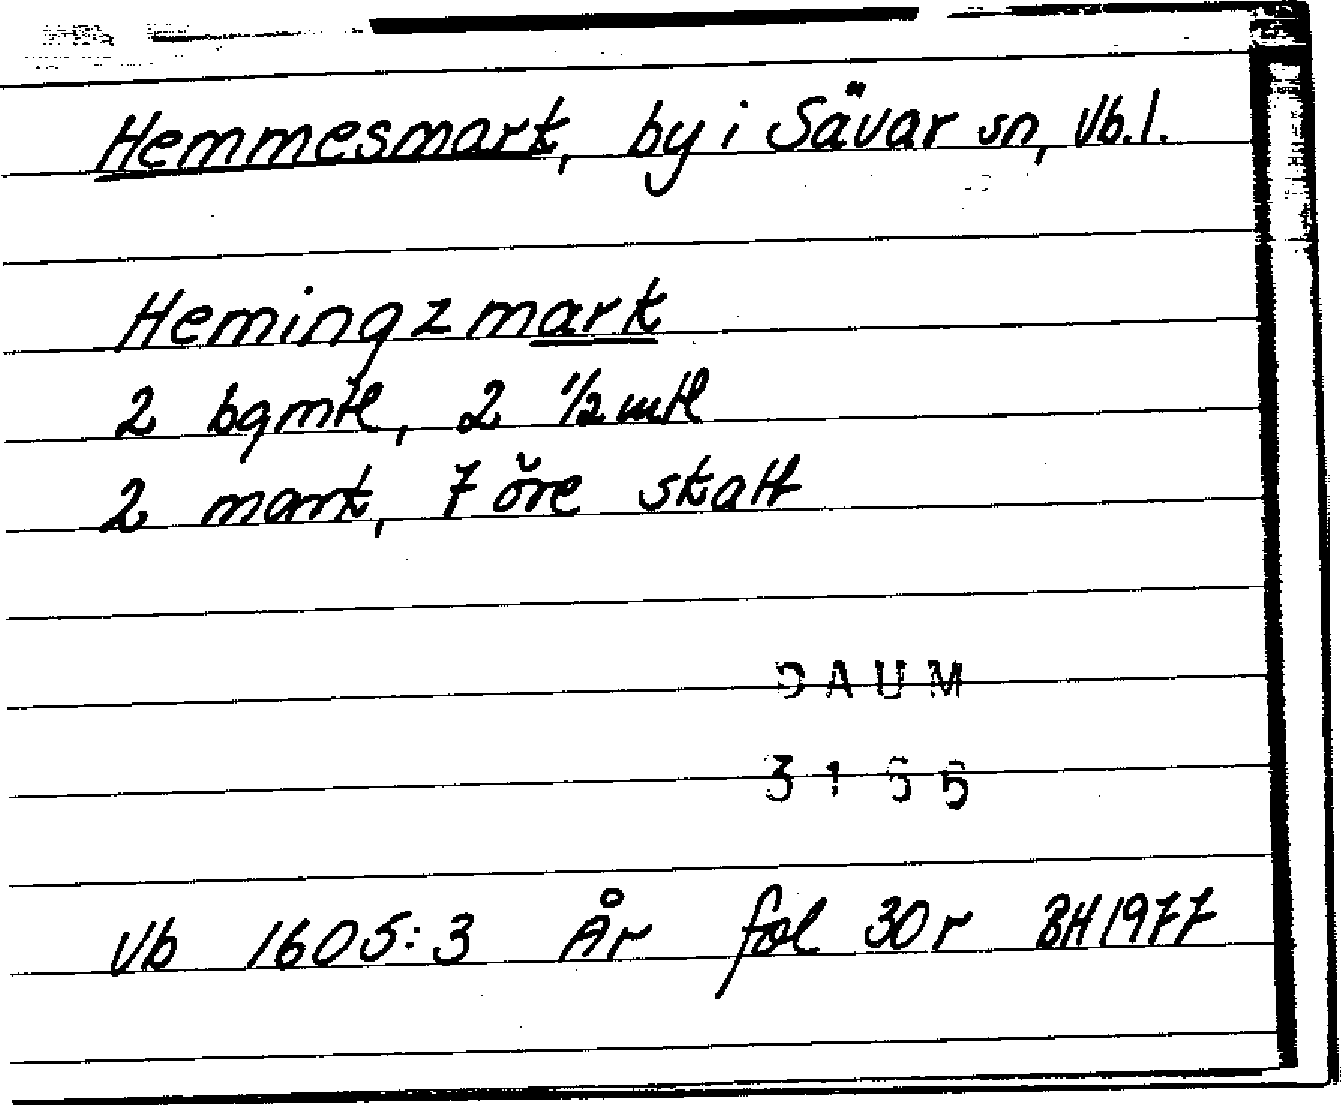 Hemmesmark, by i Sävar sn, Vb.l.
Hemingzmark
2 bgmtl, 2 1/2 mtl
2 mark, 7 öre skatt
DAUM
3166
Vb 1605:3 År fol 30r BH 1977